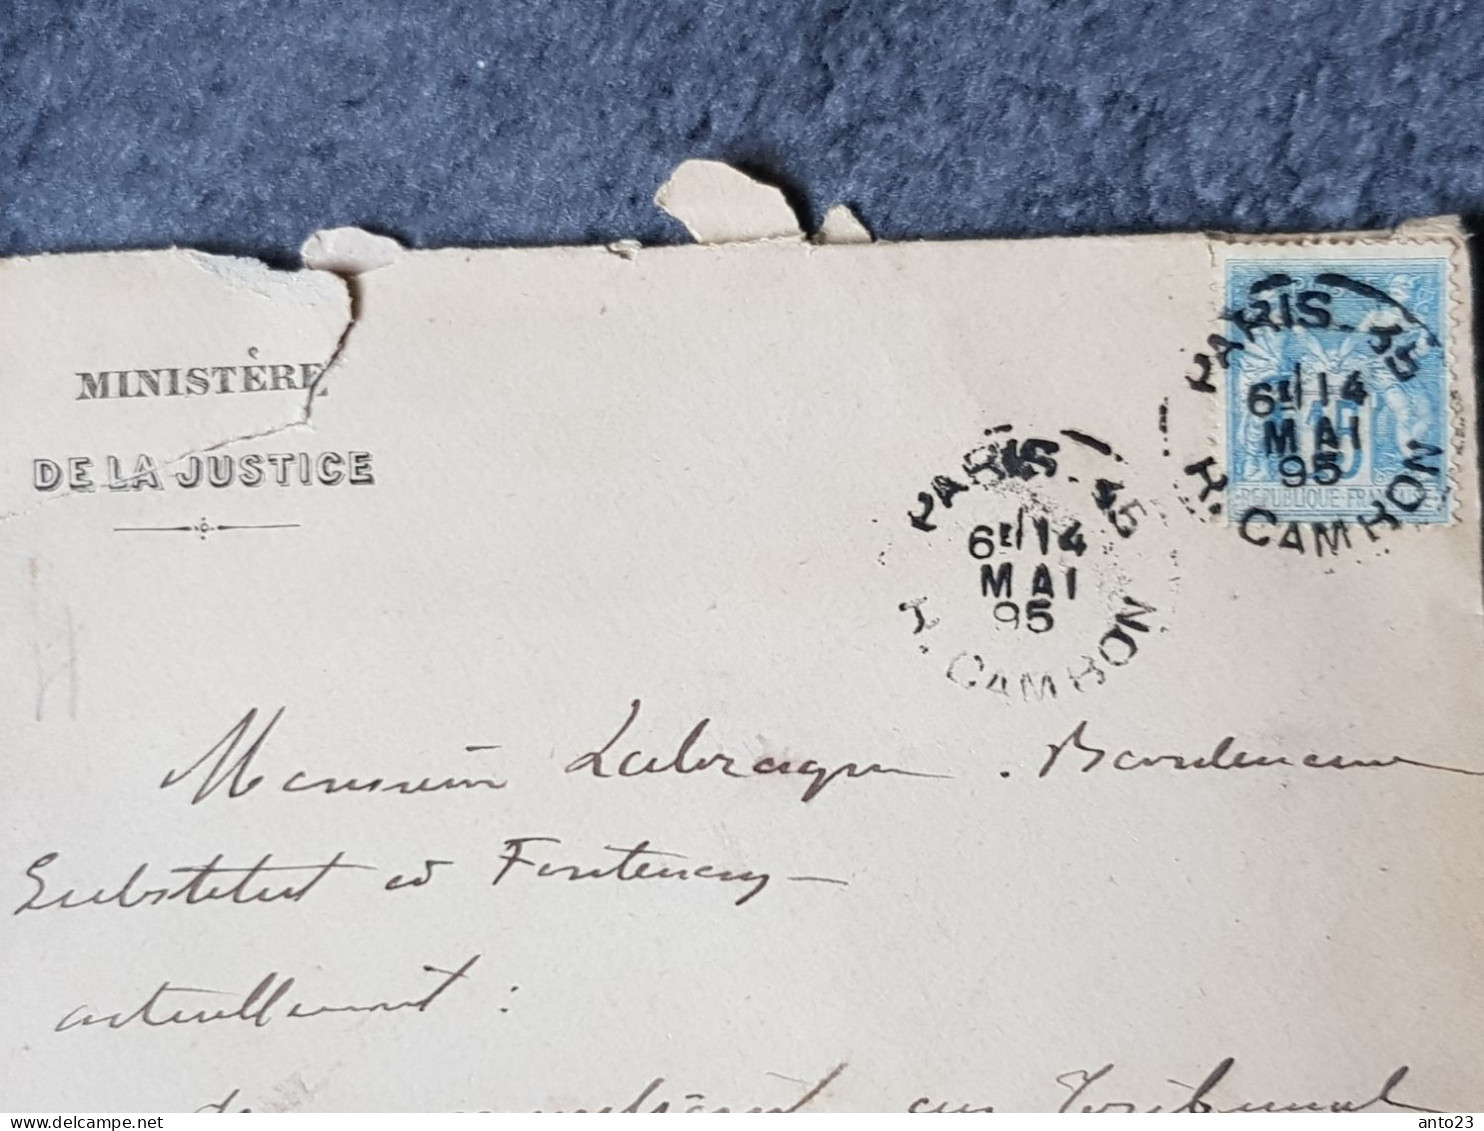 MINISTÈRE
DE LA JUSTICE
PARIS. 45
6E/14
MAI
95
R. CAMBON
PARIS. 45
6E/14
MAI
95
R. CAMBON
15
REPUBLIQUE FRANCAISE
Monsieur Labrague. Bordenave
Substitut à Fontenay
actuellement :
au Tribunal
delcampe.net
anto23